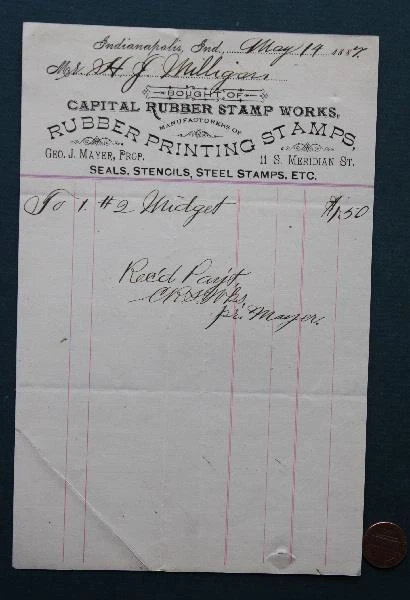 Indianapolis, Ind., May 19 1887.
Mr. H J Milligan
BOUGHT OF
CAPITAL RUBBER STAMP WORKS,
MANUFACTURERS OF
RUBBER PRINTING STAMPS,
GEO. J. MAYER, PROP. 11 S. MERIDIAN ST.
SEALS, STENCILS, STEEL STAMPS, ETC.
To 1 #2 Midget $1.50
Rec'd Pay't
C.R.S. Wks,
pr. Mayer.